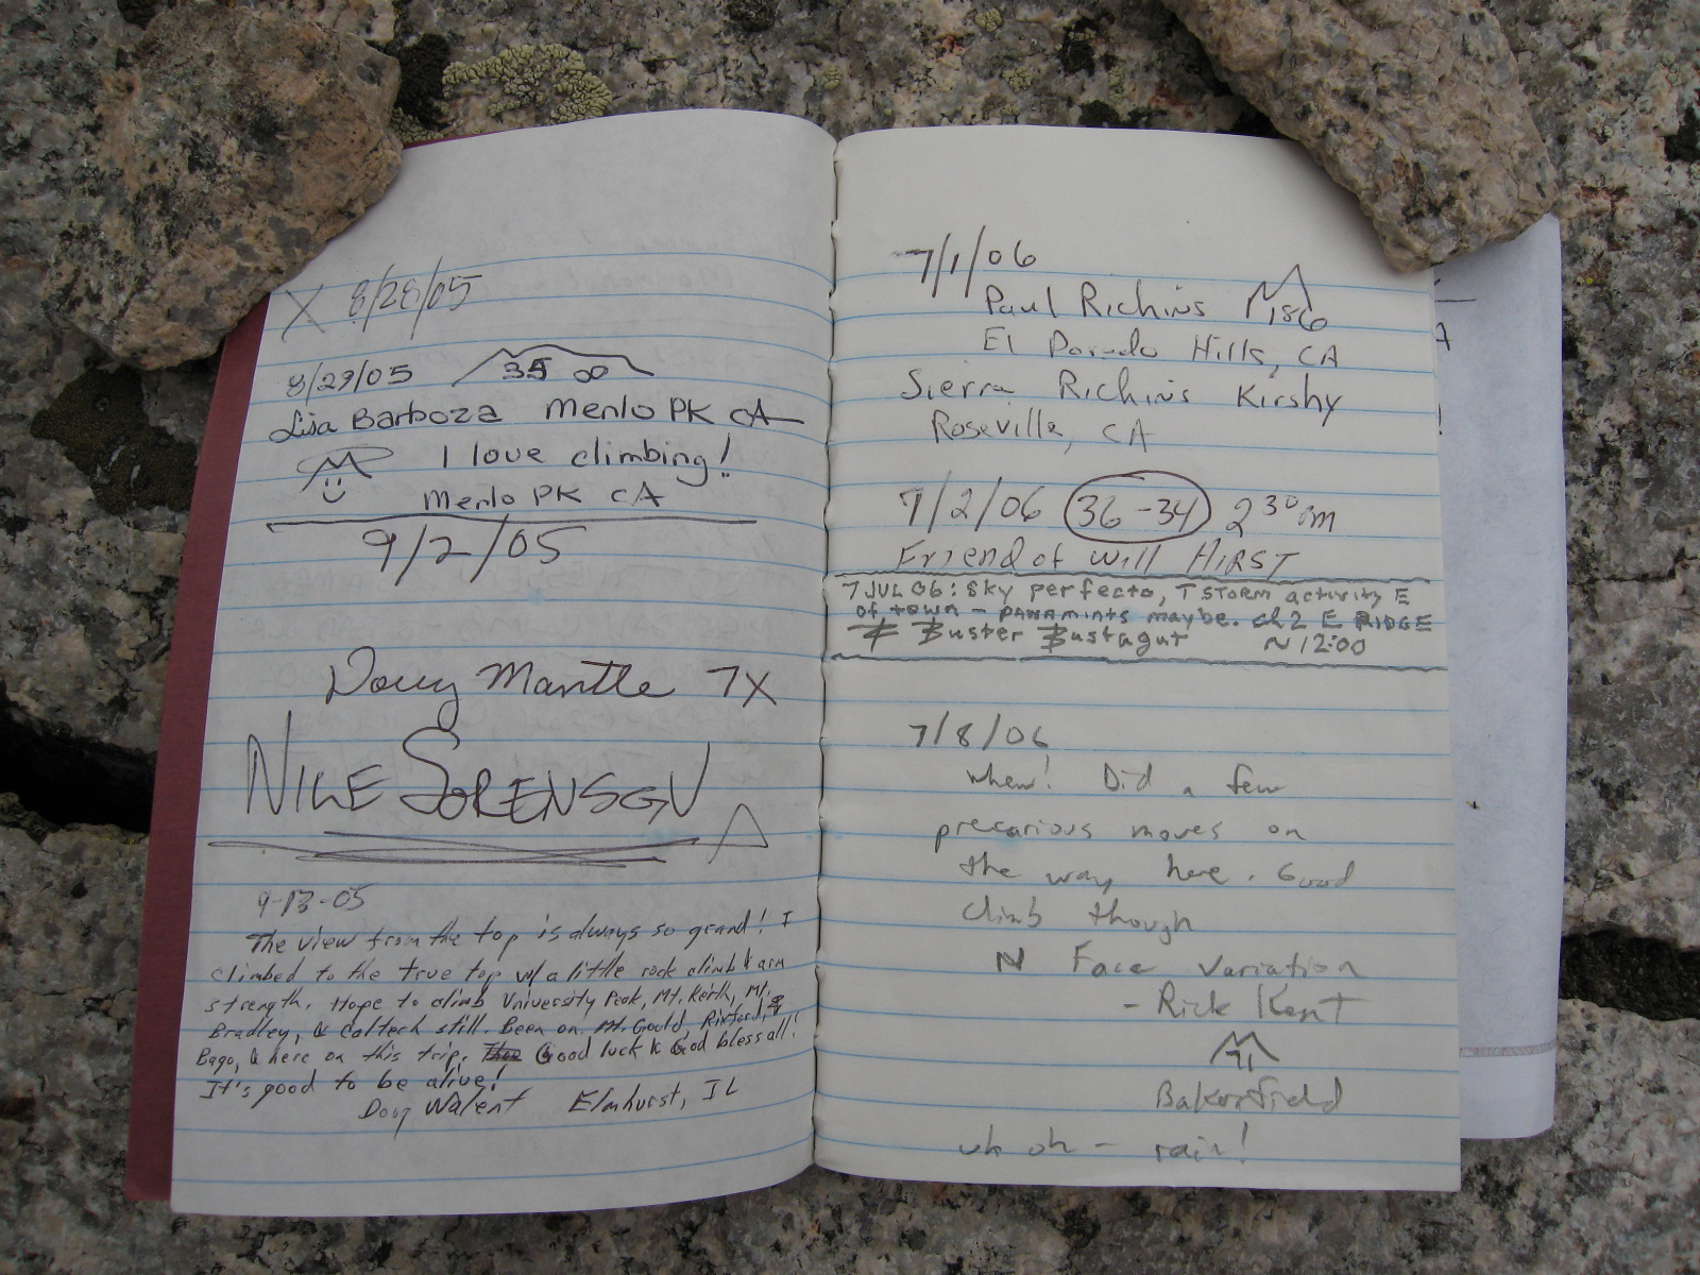 X 8/28/05
8/29/05 35 00
Lisa Barboza Menlo PK CA
I love climbing!
Menlo PK CA
9/2/05
Doug Mantle 7X
SORENSON
9-13-05
The view from the top is always so grand! I
climbed to the true top w/ a little rock climb & arm
strength. Hope to climb University Peak, Mt. Keith, Mt.
Bradley, & Caltech still. Been on Mt. Gould, Rixford, &
Bago, & here on this trip. Good luck & God bless all!
It's good to be alive!
Doug Walent Elmhurst, IL
7/1/06
Paul Richins 186
El Dorado Hills, CA
Sierra Richins Kirshy
Roseville, CA
7/2/06 36-34 2 30 pm
Friend of Will HIRST
7 JUL 06: Sky perfecto, T STORM activity E
of town - PANAMINTS maybe. E RIDGE
Buster Bustagut ~12:00
7/8/06
whew! Did a few
precarious moves on
the way here. Good
climb though
N Face Variation
- Rick Kent
71
Bakersfield
uh oh - rain!